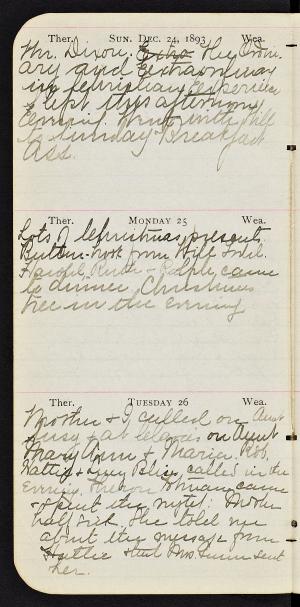 Ther. SUN. DEC. 24, 1893 Wea.
Mr. Dixon. Extra The Ordin-
ary and Extraordinary
in Christian Experience
& left this afternoon,
went with Will
to Sunday Breakfast
Ass.
Ther. MONDAY 25 Wea.
Lots of Christmas presents
Button-hook from Will
Harold, Ruth & Ralph, came
to dinner, Christmas
tree in the evening
Ther. TUESDAY 26 Wea.
Mother & I called on Aunt
Susy & at on Aunt
Mary Ann & Maria. Rob,
Hattie & Lucy Bliss, called in the
Evening. came
& spent the night.
half sick. She told me
about the message from
Hattie that Mrs. sent
her.